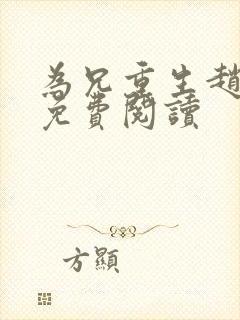 為兄重生趙
免費閱讀
方顯